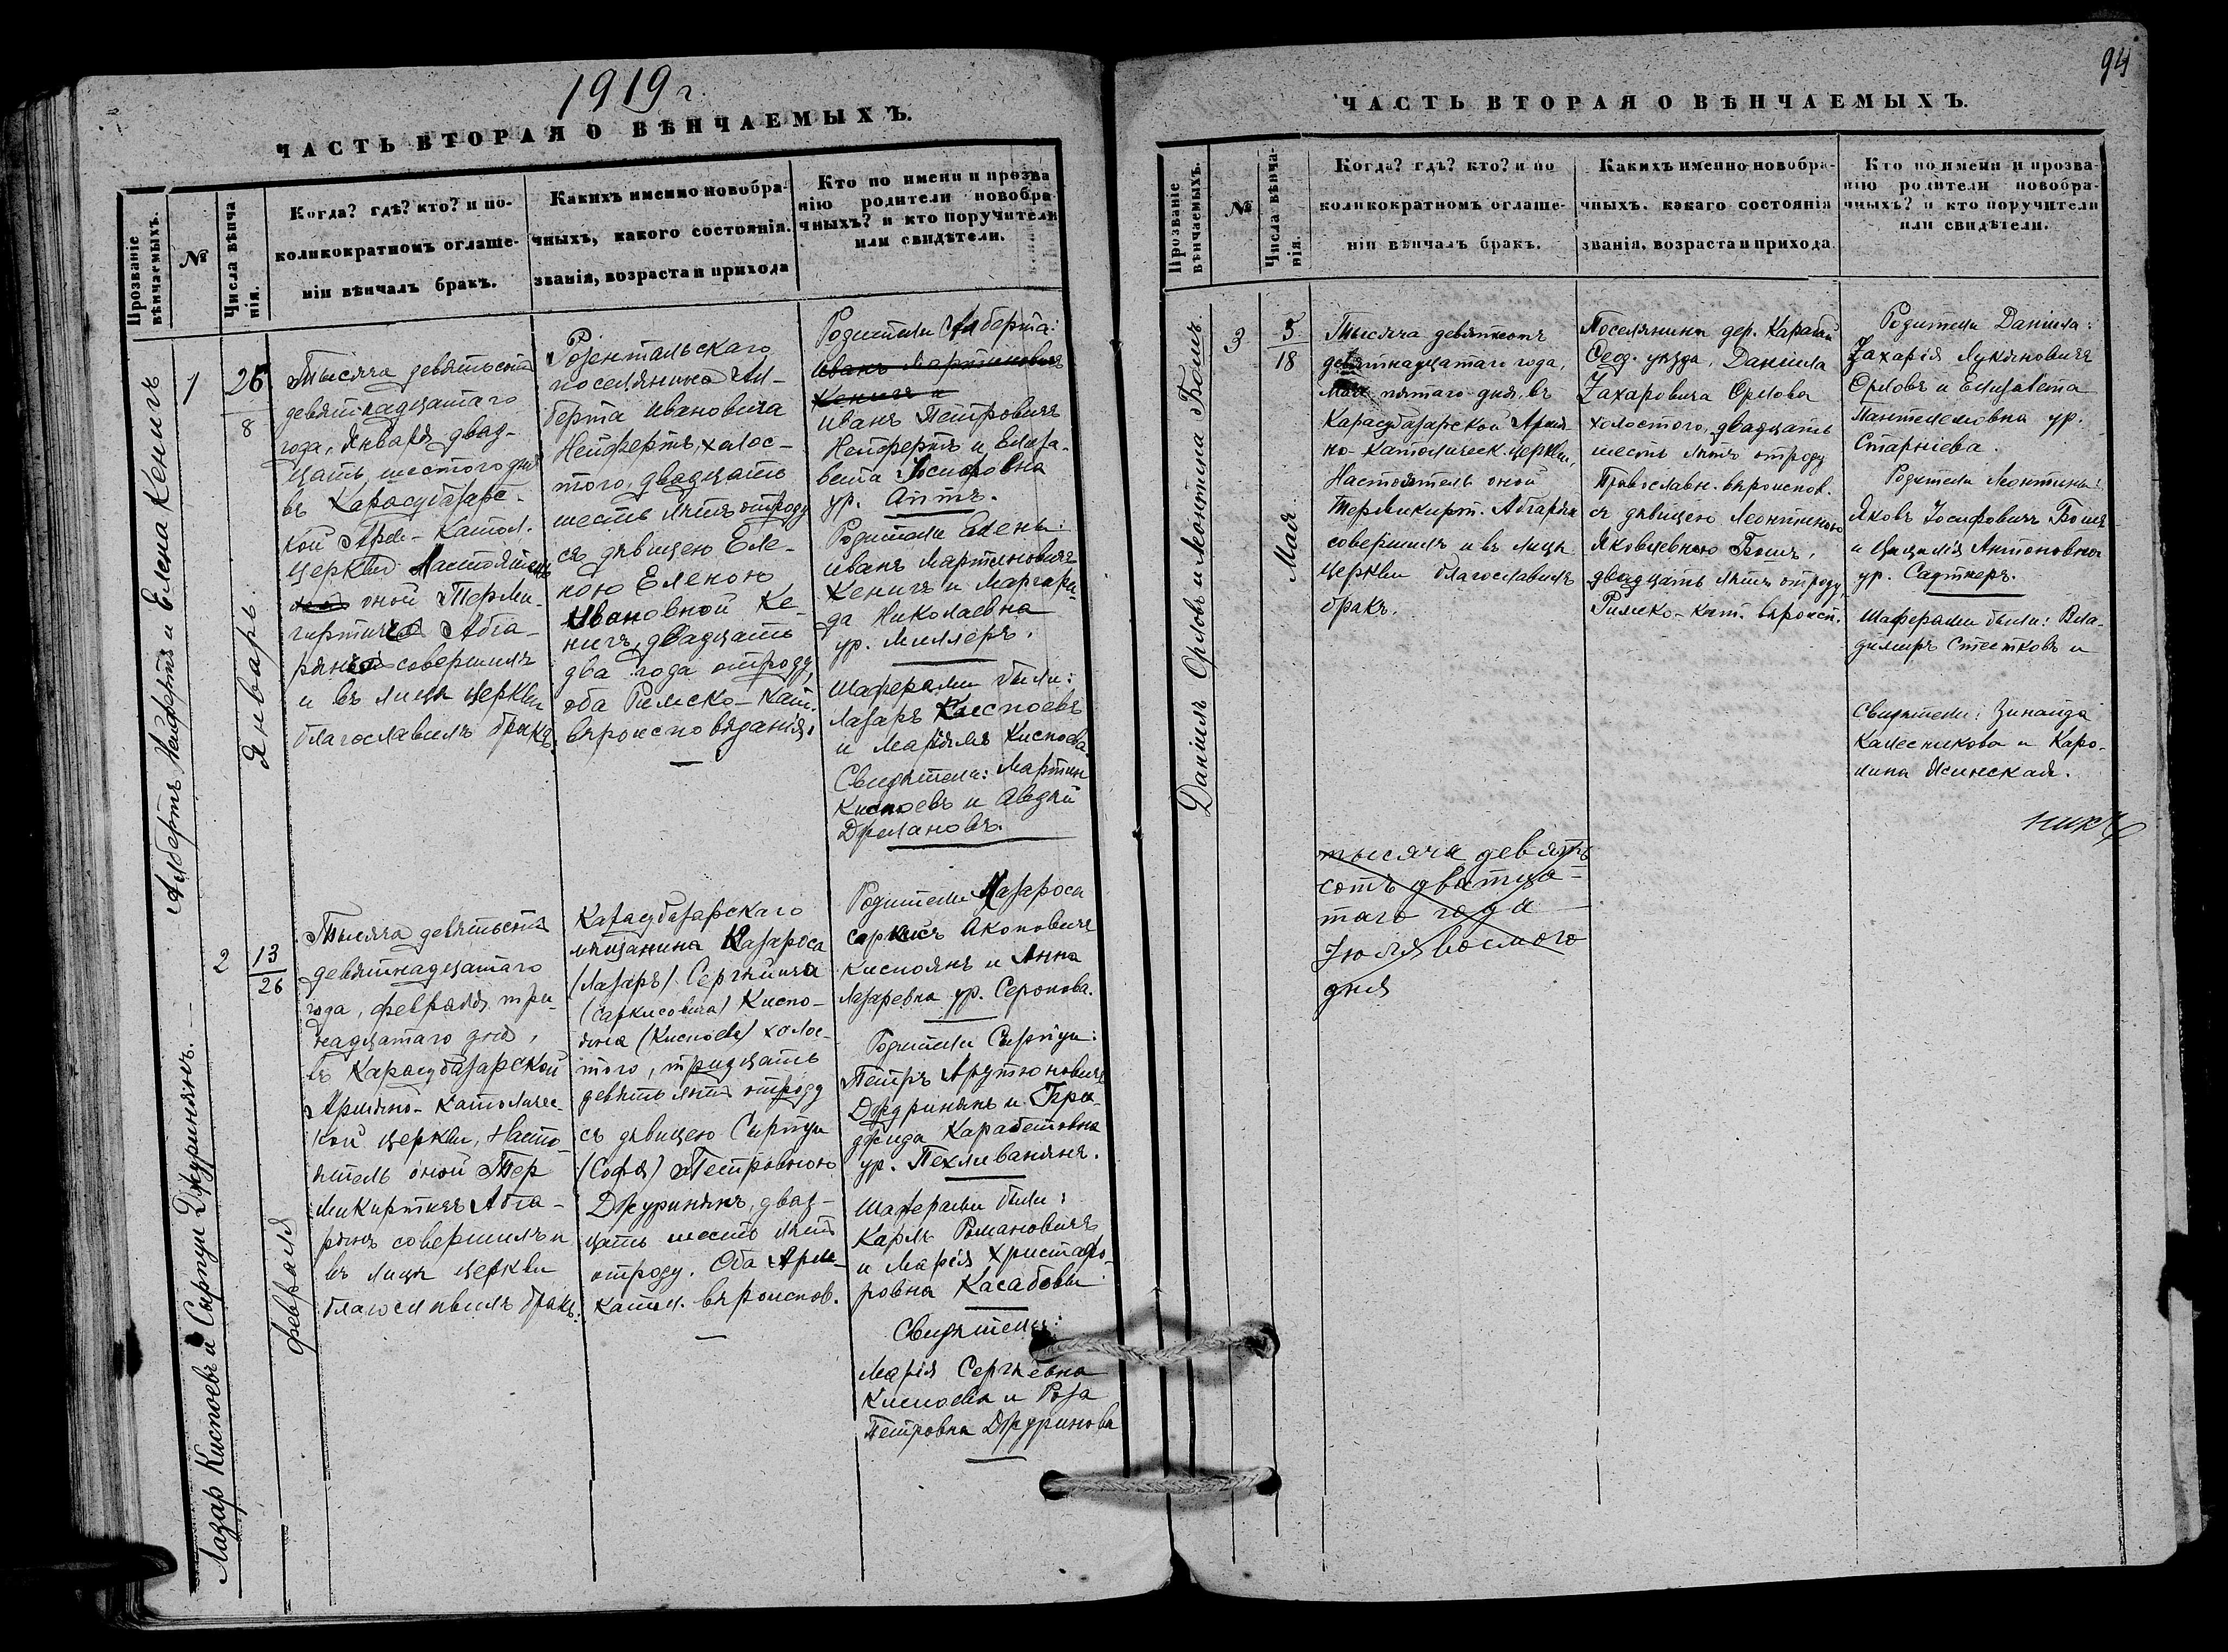 1919 г.
ЧАСТЬ ВТОРАЯ О ВѢНЧАЕМЫХЪ.
Прозваніе
вѣнчаемыхъ.
№
Числа вѣнча
нія.
Когда? гдѣ? кто? и по-
коликократномъ оглаше-
ніи вѣнчалъ бракъ.
Какихъ именно новобра-
чныхъ, какого состоянія.
званія, возраста и прихода
Кто по имени и прозва
нію родители новобра-
чныхъ? и кто поручители
или свидѣтели.
Албертъ Нейфертъ и Елена Кенигъ
1
26
8
Январь.
Тысяча девятьсотъ
девятнадцатаго
года, Января двад-
цать шестого дня
въ Карасубазарс-
кой Арм- Катол.
церкви Настоятель
оной Тер Ми-
гиртичъ Абга-
рянъ совершилъ
и въ лицѣ церкви
благославилъ бракъ.
Розентальскаго
поселянина Ал-
берта Ивановича
Нейфертъ, холос-
того, двадцать
шесть лѣтъ отроду
съ дѣвицею Еле-
ною Еленою
Ивановной Ке-
нигъ, двадцать
два года отроду,
оба Римско-Кат.
вѣроисповѣданія.
Родители Алберта:
Иванъ Мартиновичъ
Кенигъ и
Иванъ Петровичъ
Нейфертъ и Елиза-
вета Іосифовна
ур. Аптъ.
Родители Елены:
Иванъ Мартиновичъ
Кенигъ и Маргари-
да Николаевна
ур. Миллеръ.
Шаферами были:
Лазарь Киспоевъ
и Маріямъ Киспоева
Свидѣтели: Мартин
Киспоевъ и Авдѣй
Дрмановъ.
Лазар Киспоевъ и Сырпуи Джуринянъ.
2
13
26
Февраля
Тысяча девятьсотъ
девятнадцатаго
года, февраля три-
надцатаго дня,
въ Карасубазарской
Армяно-Католичес-
кой церкви, Насто-
ятель оной Тер
Микиртичъ Абга-
рянъ совершилъ и
въ лицѣ церкви
благославилъ бракъ.
Карасубазарскаго
мѣщанина Казароса
(Лазаръ) Сергѣевича
(Саркисовича) Киспо-
яна (Киспоевъ) холос-
того, тридцать
девять лѣтъ отроду
съ дѣвицею Сырпуи
(Софія) Петровною
Джуринянъ, двад-
цать шесть лѣтъ
отроду. Оба Арм-
катол. вѣроиспов.
Родители Казароса
Саркисъ Акоповичъ
Киспоянъ и Анна
Лазаревна ур. Серопова.
Родители Сырпуи:
Петръ Арутюновичъ
Джуринянъ и Тру-
джида Карабетовна
ур. Пехливанянъ.
Шаферами были:
Карлъ Романовичъ
и Марія Христафо-
ровна Касабовы.
Свидѣтели:
Марія Сергѣевна
Киспоева и Роза
Петровна Джуринова
94
ЧАСТЬ ВТОРАЯ О ВѢНЧАЕМЫХЪ.
Прозваніе
вѣнчаемыхъ.
№
Числа вѣнча-
нія.
Когда? гдѣ? кто? и по
коликократномъ оглаше-
ніи вѣнчалъ бракъ.
Какихъ именно новобра-
чныхъ. какаго состоянія
званія, возраста и прихода
Кто по имени и прозва-
нію родители новобра-
чныхъ? и кто поручители
или свидѣтели.
Даніилъ Орловъ и Леонтина Бошъ.
3
5
18
Мая
Тысяча девятсотъ
девятнадцатаго года,
Мая пятаго дня, въ
Карасубазарской Армя-
но-Католическ. церкви,
Настоятель оной
Тер Микирт. Абгарян
совершилъ и въ лицѣ
церкви благославилъ
бракъ.
Поселянина дер. Карабай
Ѳеод. уѣзда, Даніила
Захаровича Орлова
холостого, двадцать
шесть лѣтъ отроду
Православн. вѣроиспов.
съ дѣвицею Леонтиною
Яковлевною Бошъ,
двадцать лѣтъ отроду,
Римско-кат. вѣроисп.
Родители Даніила:
Захарія Лукяновичъ
Орловъ и Елизавета
Пантелеевна ур.
Родители Леонтины:
Яковъ Іосифовичъ Бошъ
и Цецилія Антоновна
ур.
Шаферами были: Вла-
димиръ Стестковъ и
Свидѣтели: Зинаида
Калесникова и Каро-
лина Ясинская.
тысяча девять
сотъ дватца-
таго года
Іюля восмого
дня